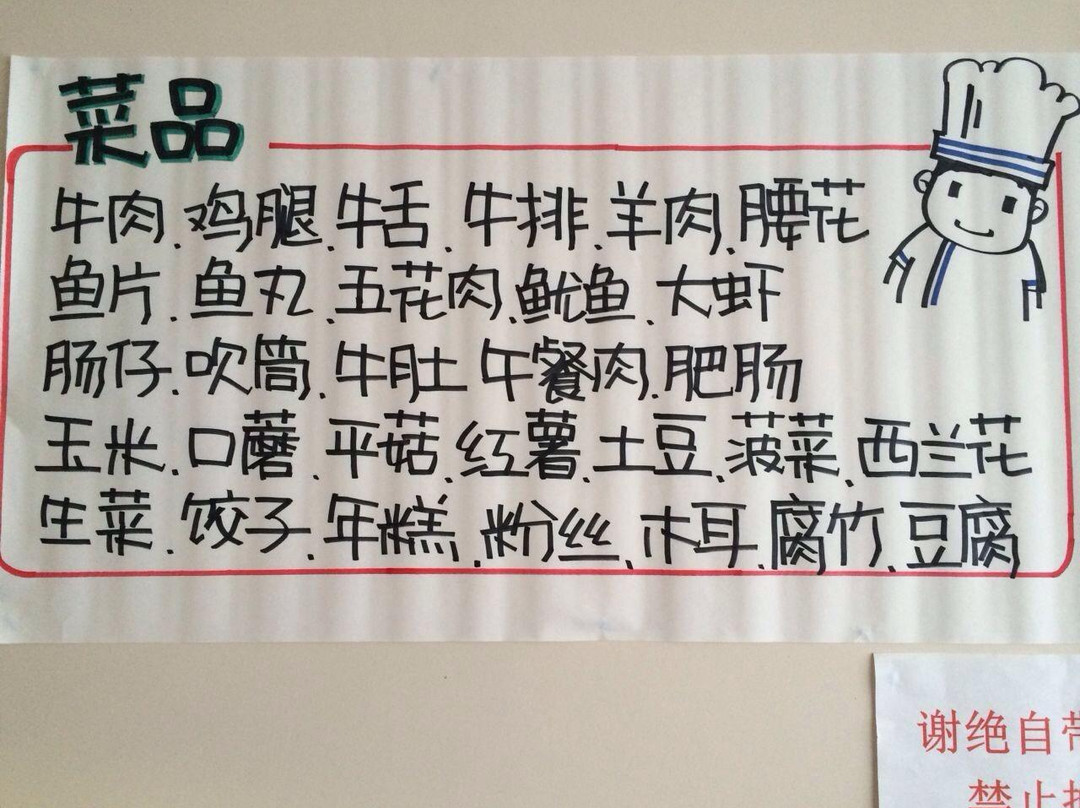 菜品
牛肉、鸡腿、牛舌、牛排、羊肉、腰花
鱼片、鱼丸、五花肉、鱿鱼、大虾
肠仔、吹筒、牛肚、午餐肉、肥肠
玉米、口蘑、平菇、红薯、土豆、菠菜、西兰花
生菜、饺子、年糕、粉丝、木耳、腐竹、豆腐
谢绝自带
禁止